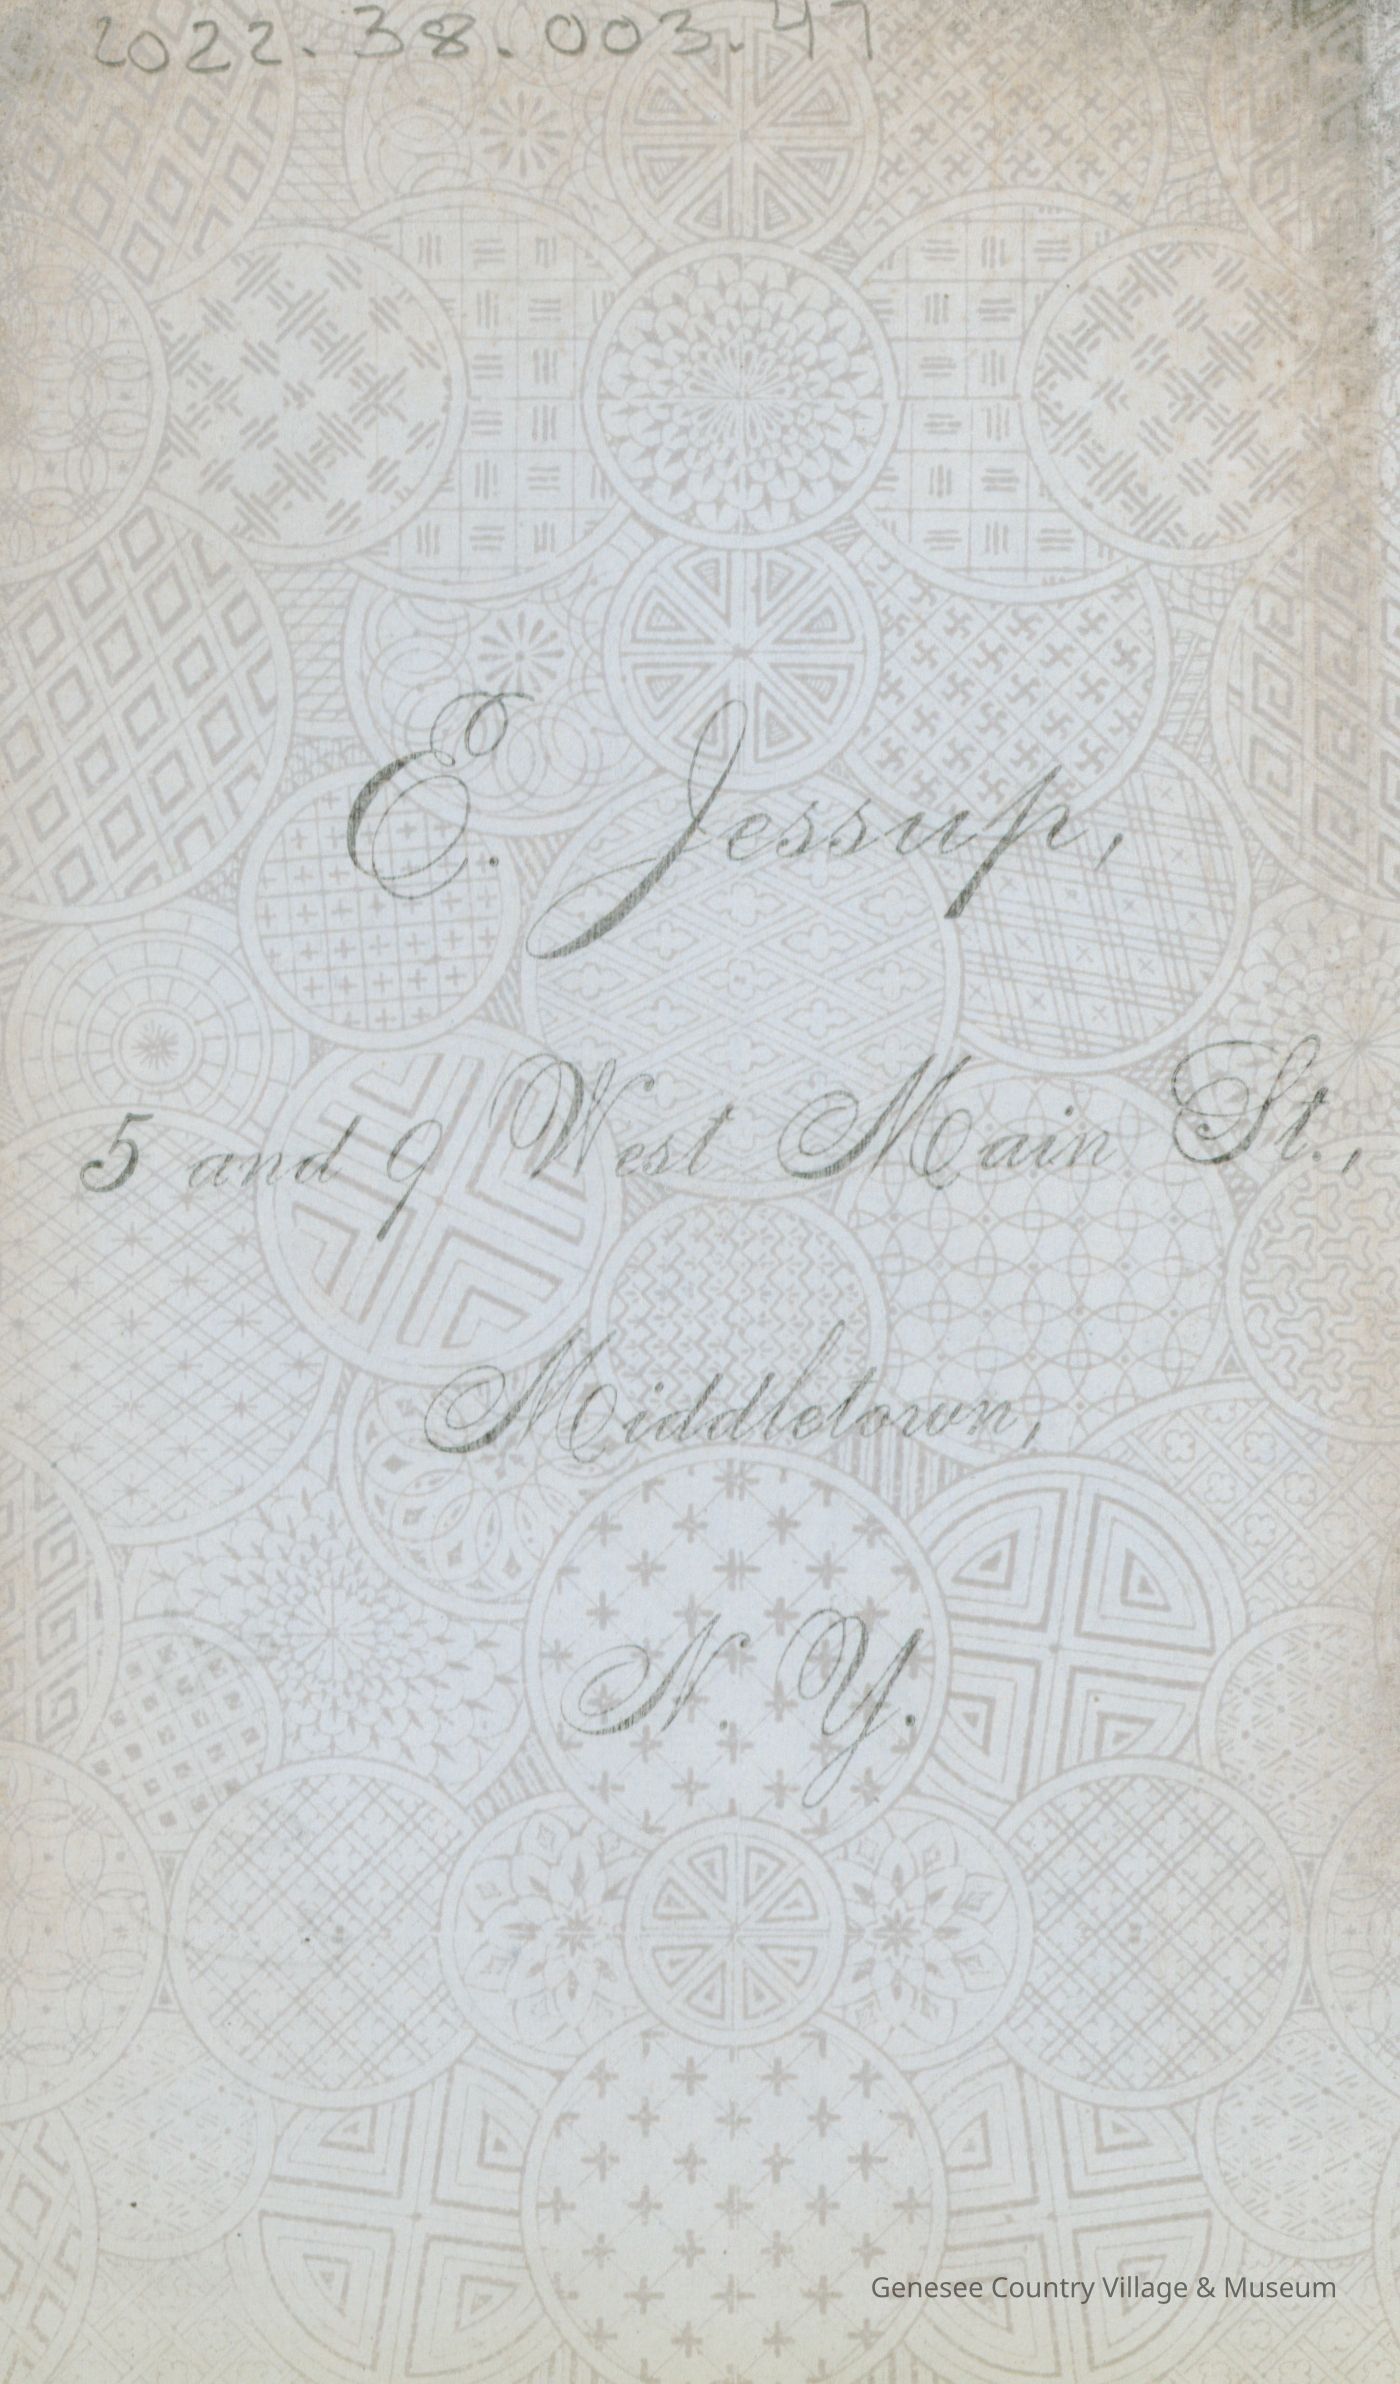 2022.38.003.47
E. Jessup,
5 and 9 West Main St.,
Middletown,
N. Y.
Genesee Country Village & Museum